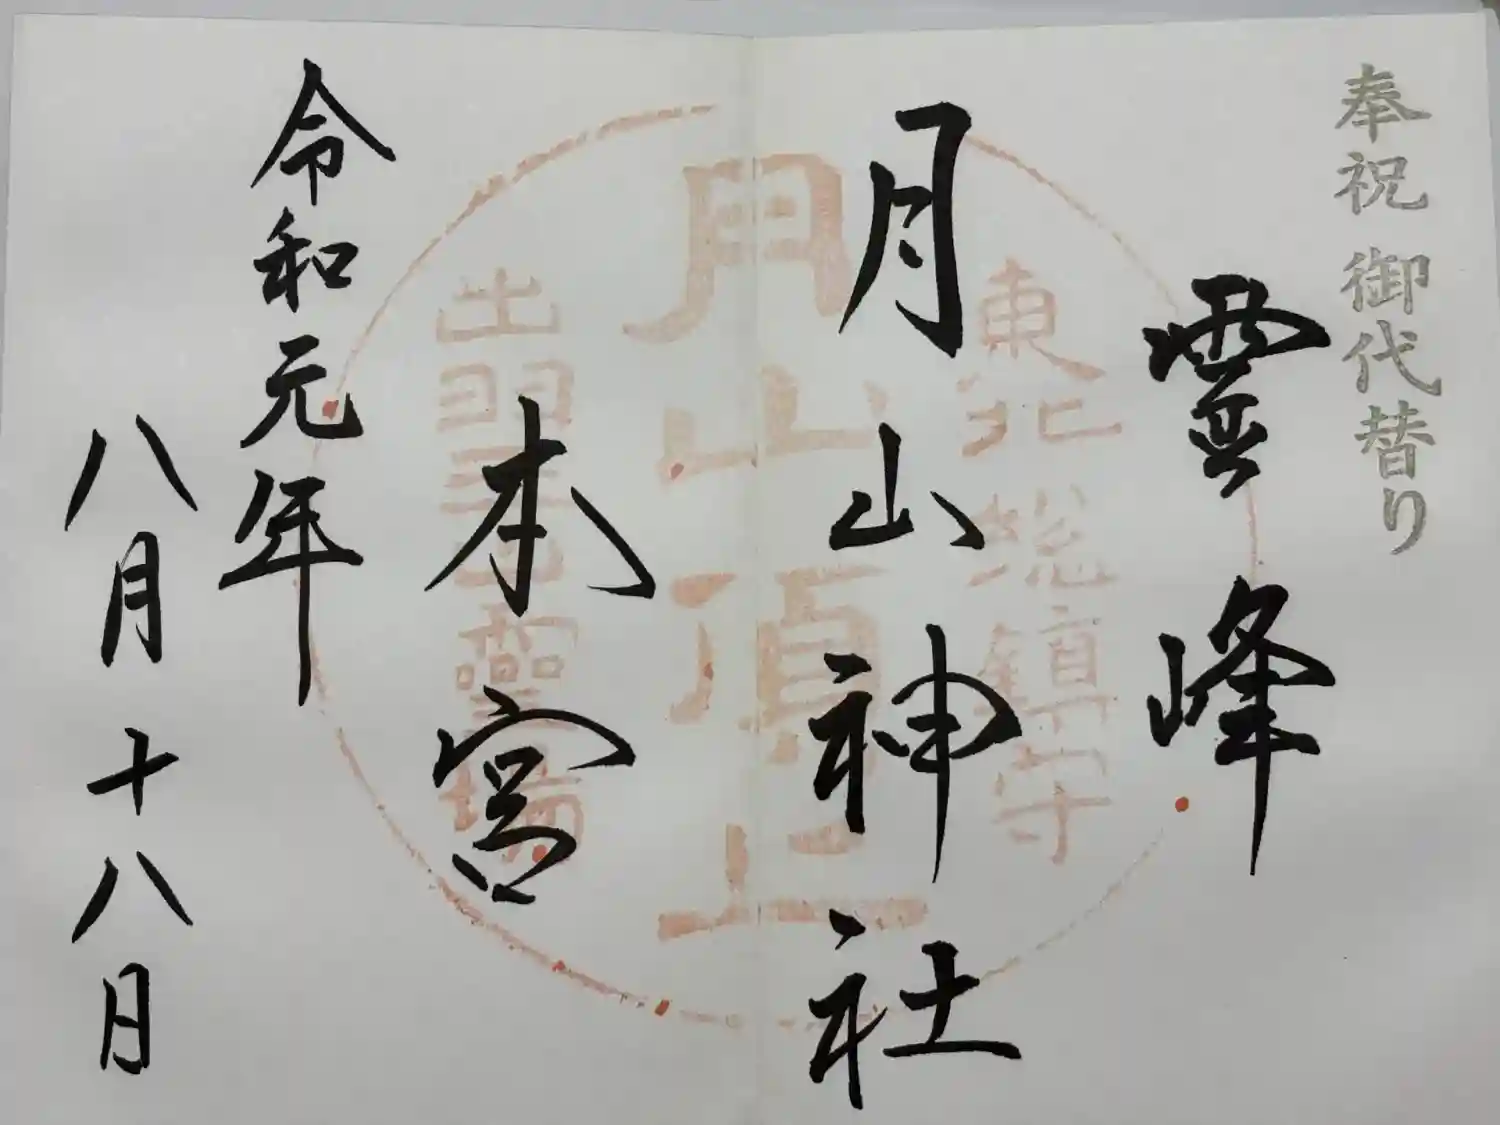 奉祝 御代替り
霊峰
東北総鎮守
月山神社
月山頂上
本宮
出羽三山霊場
令和元年
八月十八日